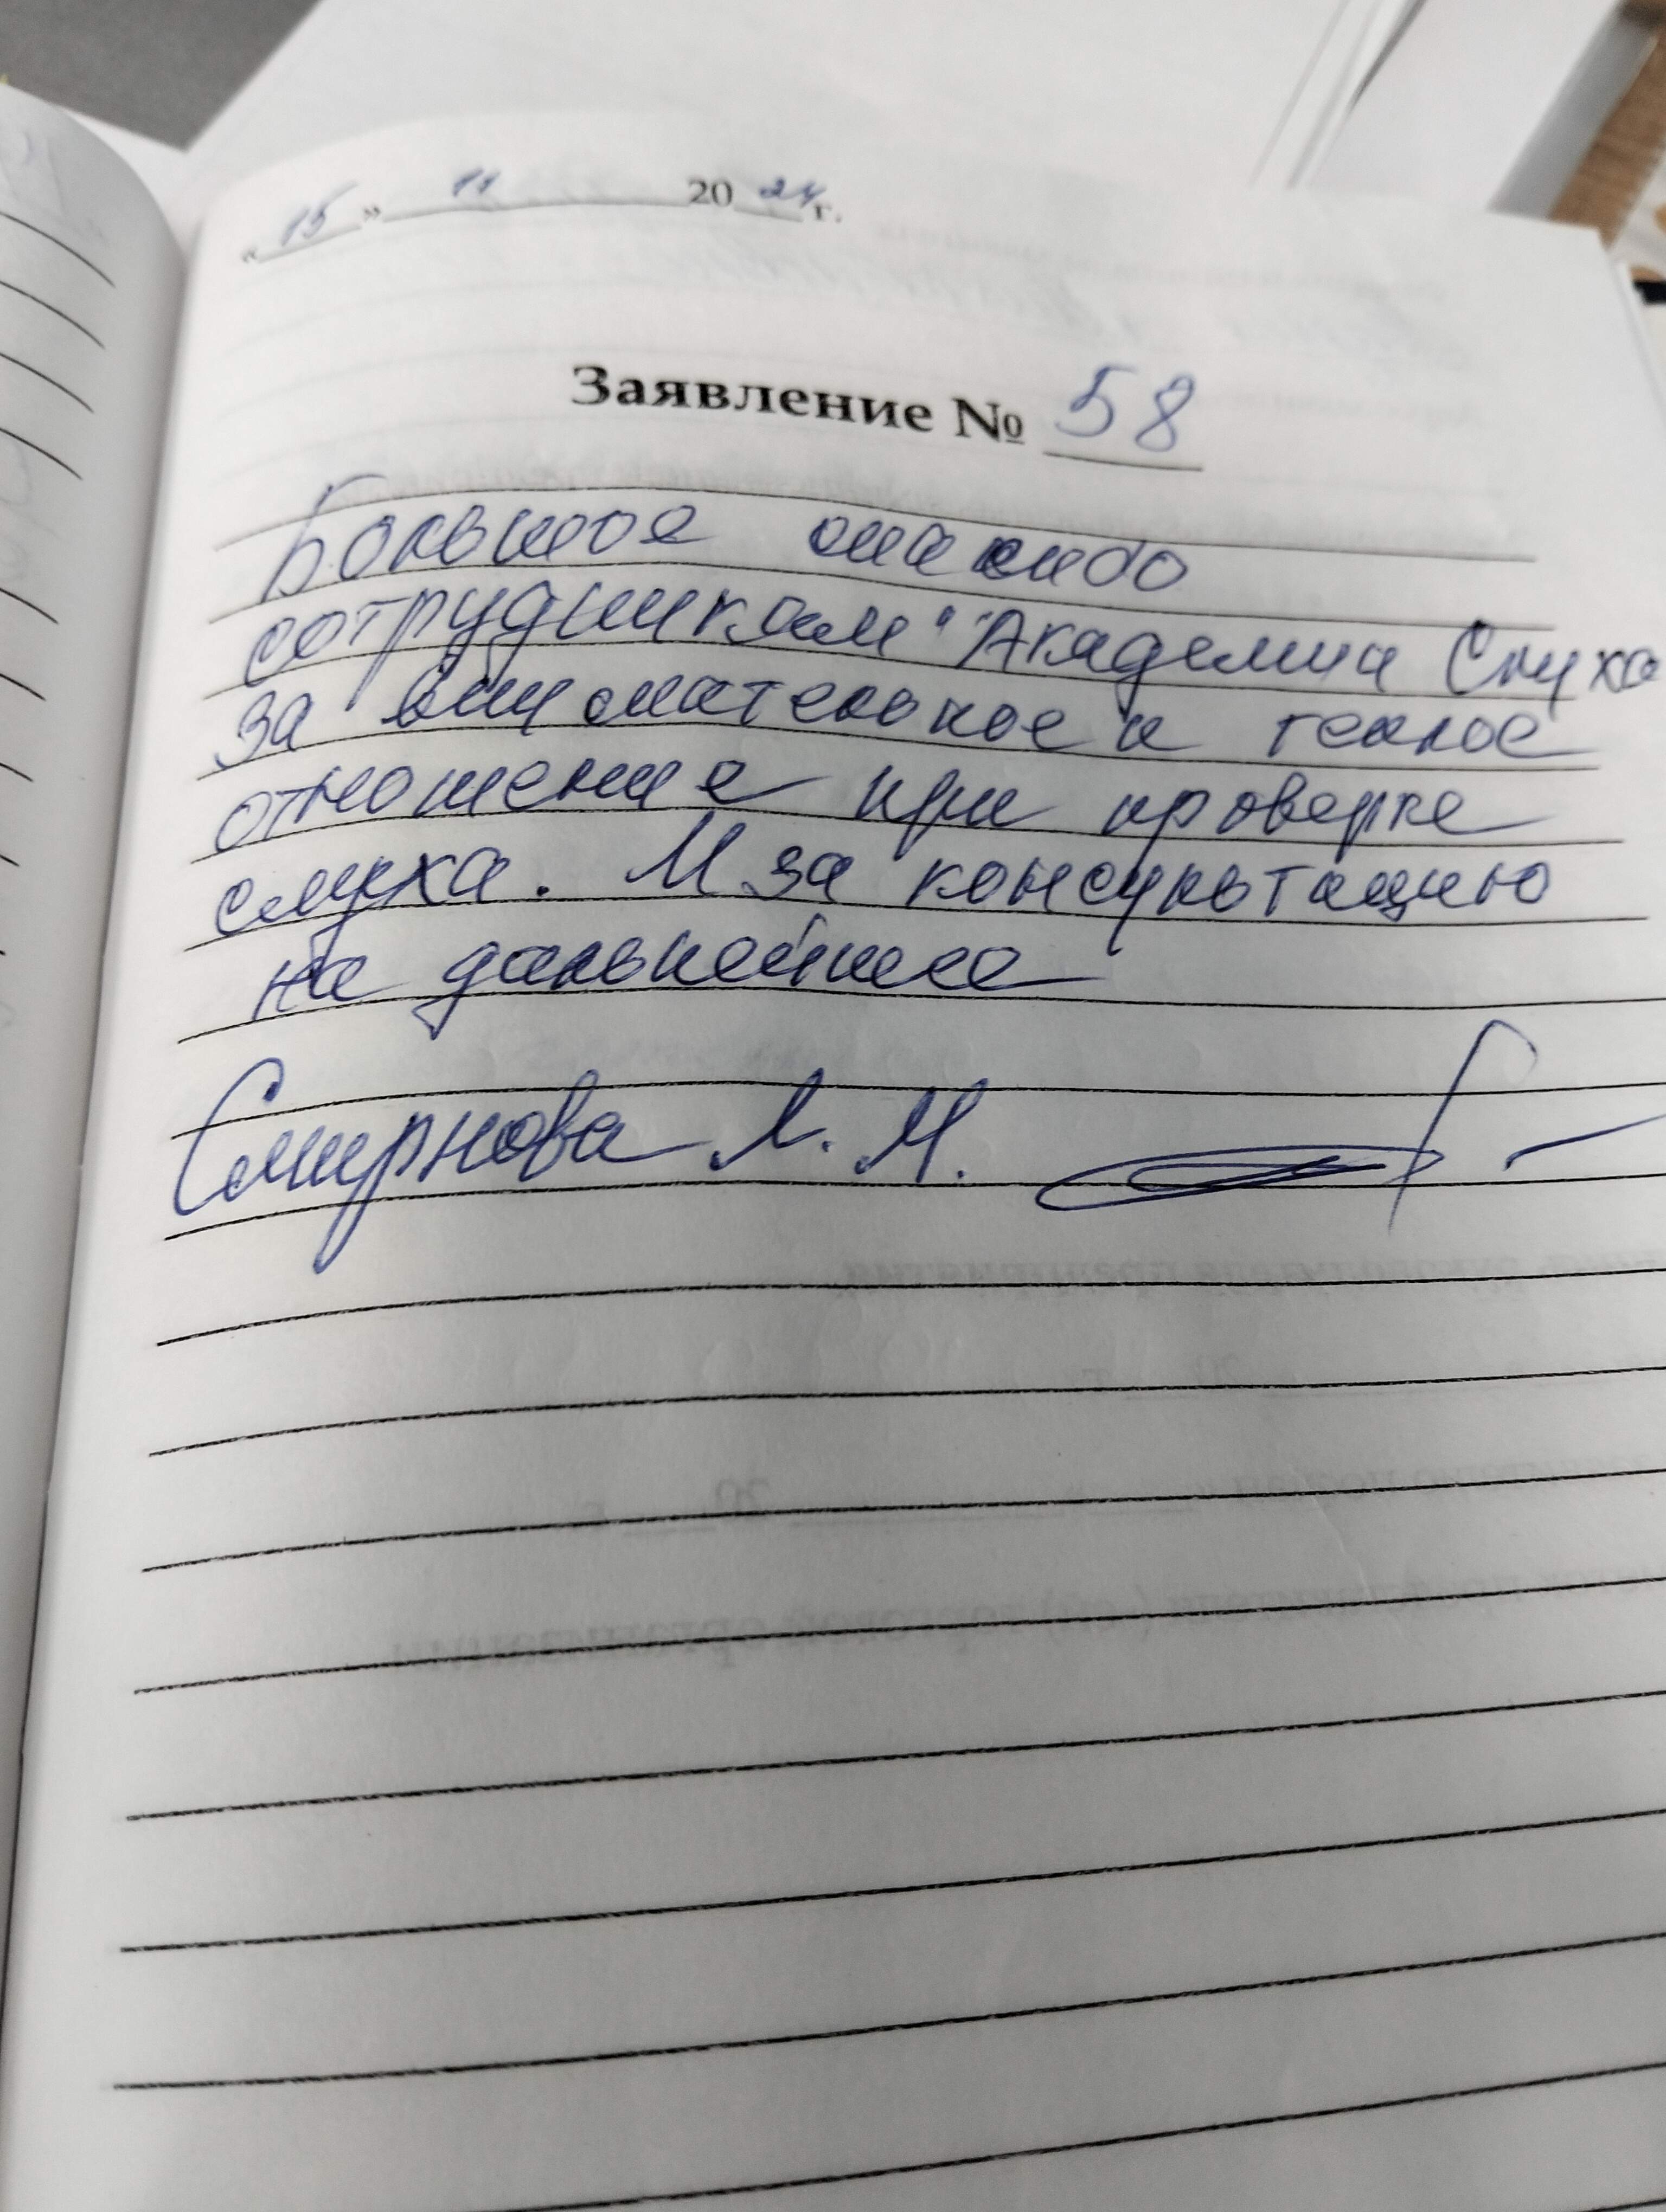 « 15 » 11 20 24 г.
Заявление № 58
Большое спасибо
сотрудникам "Академии Слуха
за внимательное и теплое
отношение при проверке
слуха. И за консультацию
на дальнейшее
Смирнова Л. М.